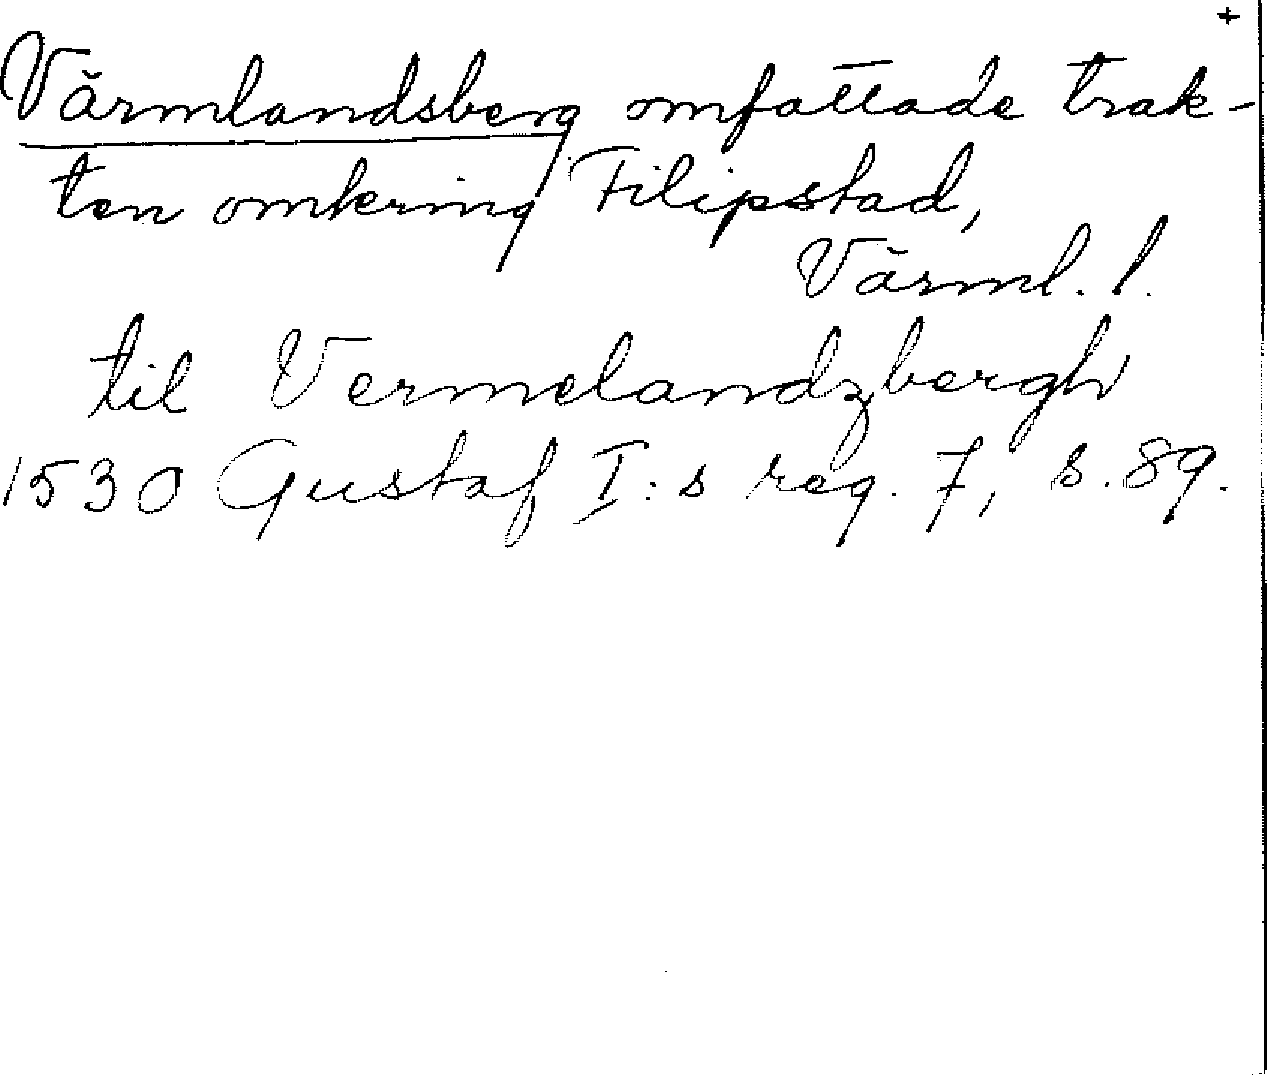 +
Värmlandsberg omfattade trak-
ten omkring Filipstad,
Värml. l.
til Vermelandzbergh
1530 Gustaf I:s reg. 7, s. 89.